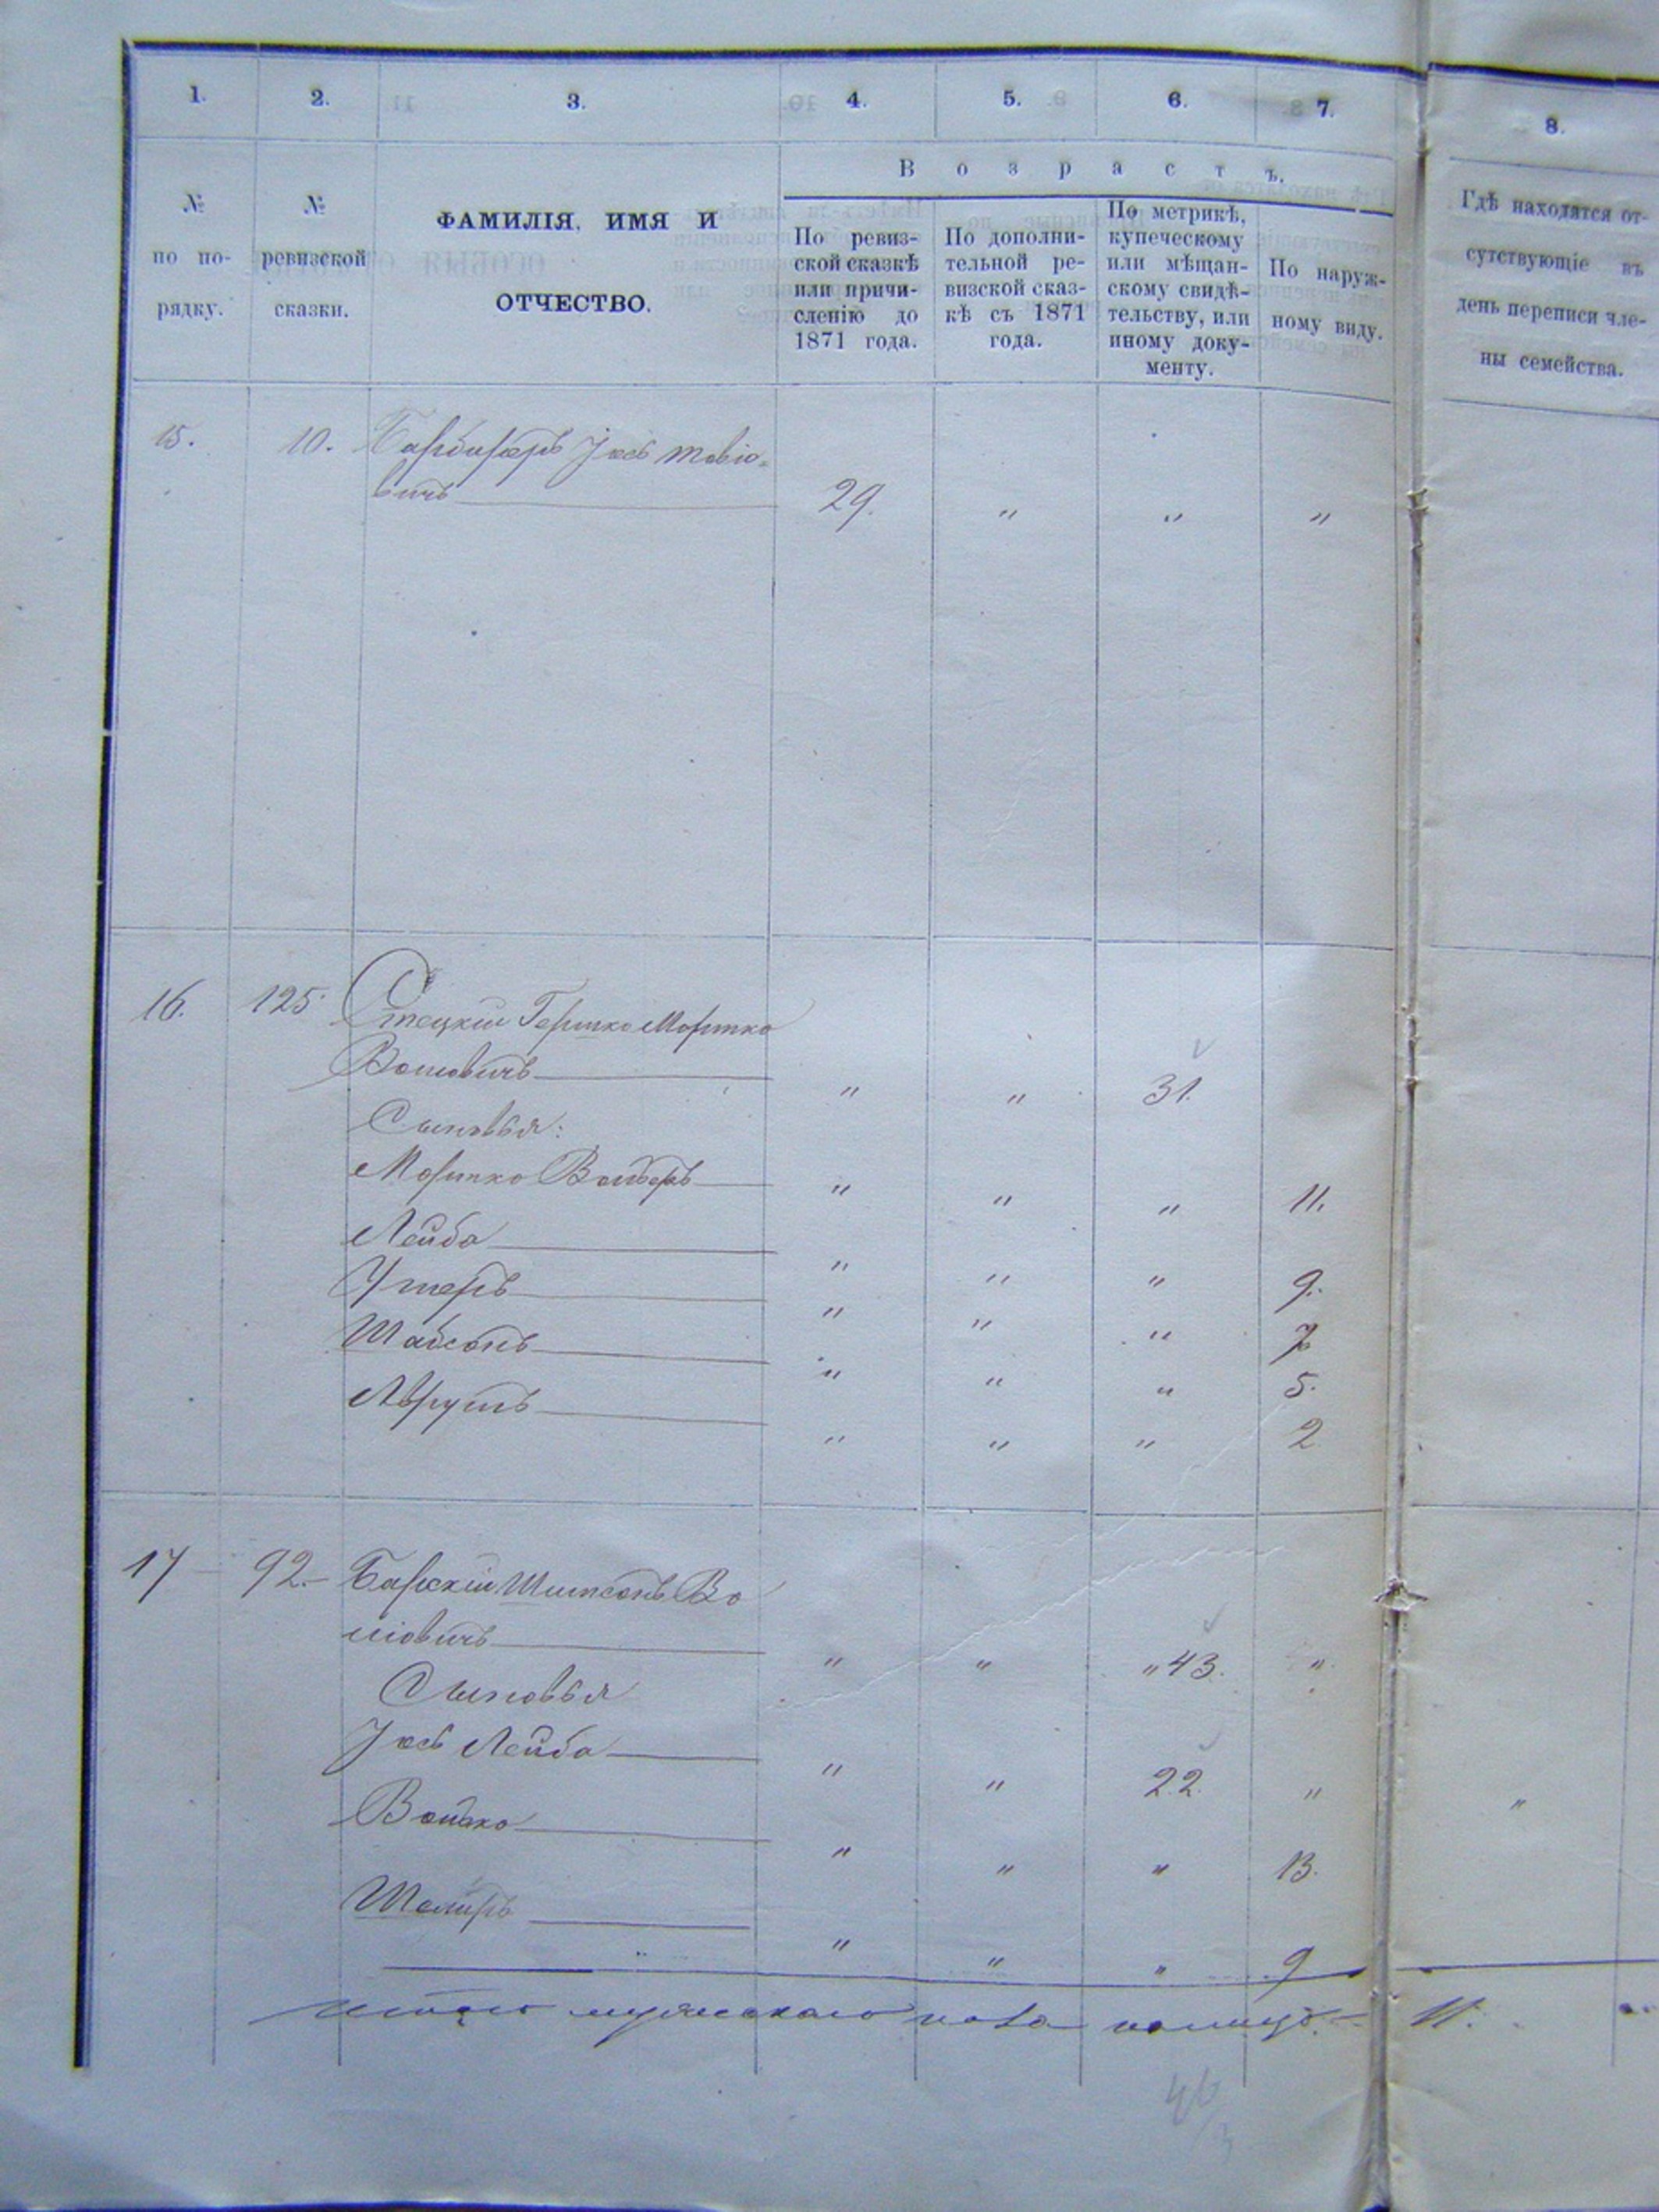 1. 2. 3. 4. 5. 6. 7. 8.
В о з р а с т ъ.
№ по по-
рядку.
№ ревизской
сказки.
ФАМИЛІЯ, ИМЯ И
ОТЧЕСТВО.
По ревиз-
ской сказкѣ
или причи-
сленію до
1871 года.
По дополни-
тельной ре-
визской сказ-
кѣ съ 1871
года.
По метрикѣ,
купеческому
или мѣщан-
скому свидѣ-
тельству, или
иному доку-
менту.
По наруж-
ному виду.
Гдѣ находятся от-
сутствующіе въ
день переписи чле-
ны семейства.
15. 10. Іось Тевіо-
вичъ 29. " " "
16. 125 Стецкій Гершко Мортко
Волковичъ " " 31.
Сыновья:
Мортко Вольфъ " " " 11.
Лейба " " " 9.
Ушеръ " " " 7
" " " 5.
" " " 2
17 92. Барскій Шимсонъ Во
" " " 43. "
Сыновья
Іось Лейба " " 22. " "
" " " 13.
" " " 9
Итого мужескаго пола 11.